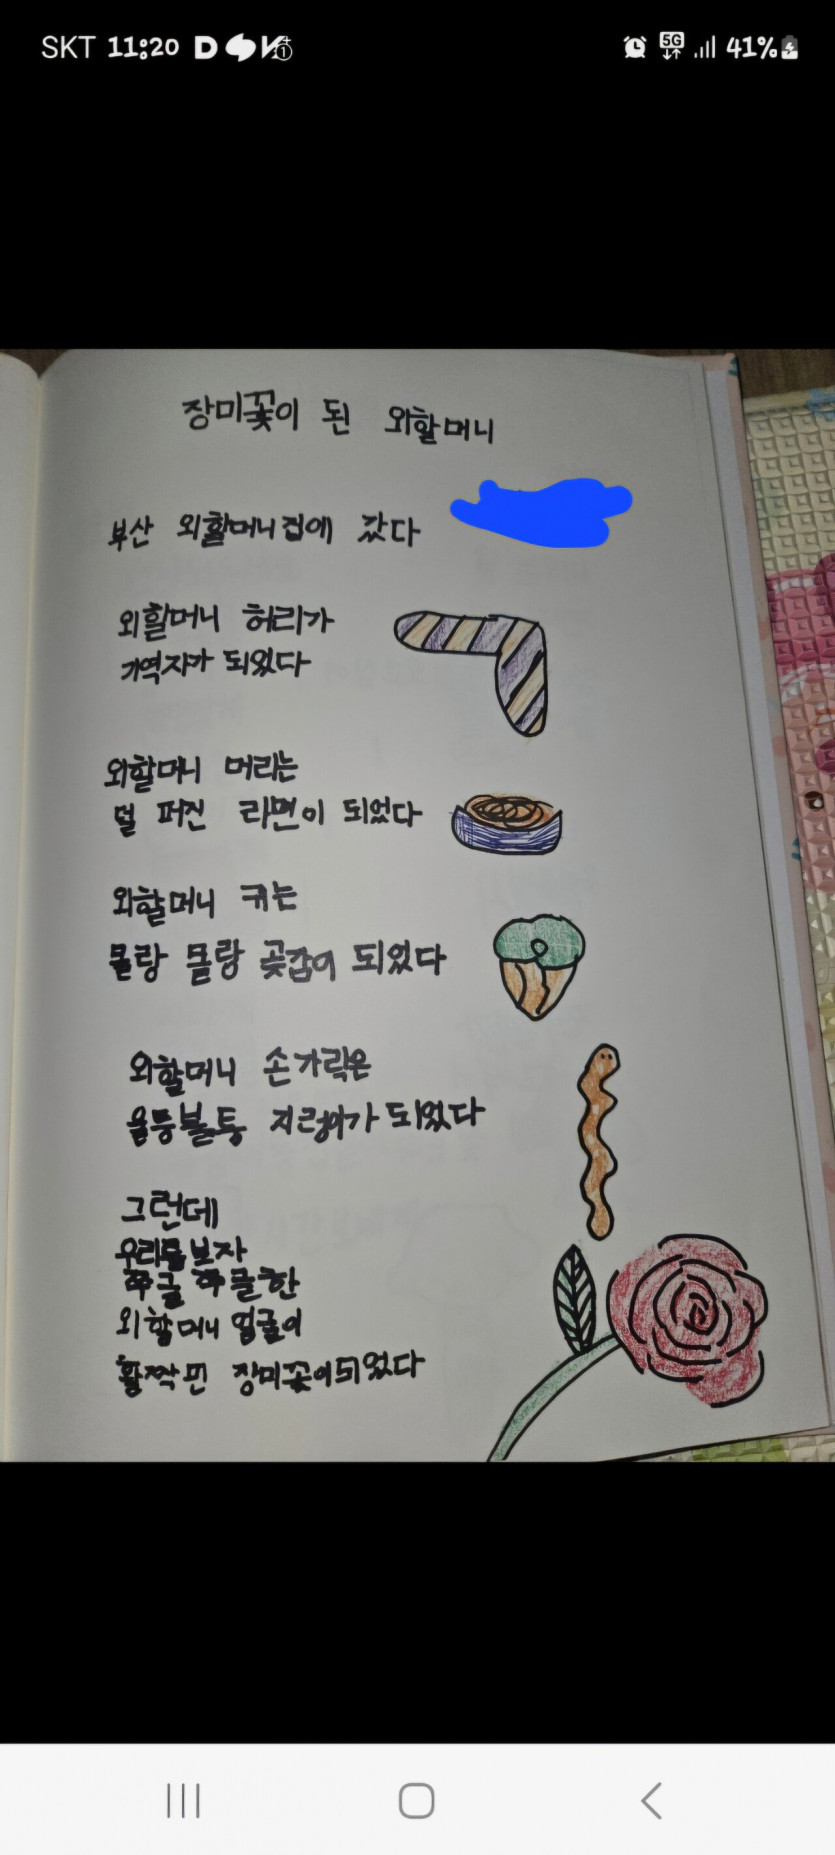 SKT 11:20
5G
41%
장미꽃이 된 외할머니
부산 외할머니집에 갔다
외할머니 허리가
기역자가 되었다
외할머니 머리는
덜 퍼진 라면이 되었다
외할머니 귀는
물랑 물랑 곶감이 되었다
외할머니 손가락은
울퉁불퉁 지렁이가 되었다
그런데
우리를보자
쭈글 쭈글한
외할머니 얼굴이
활짝 핀 장미꽃이되었다